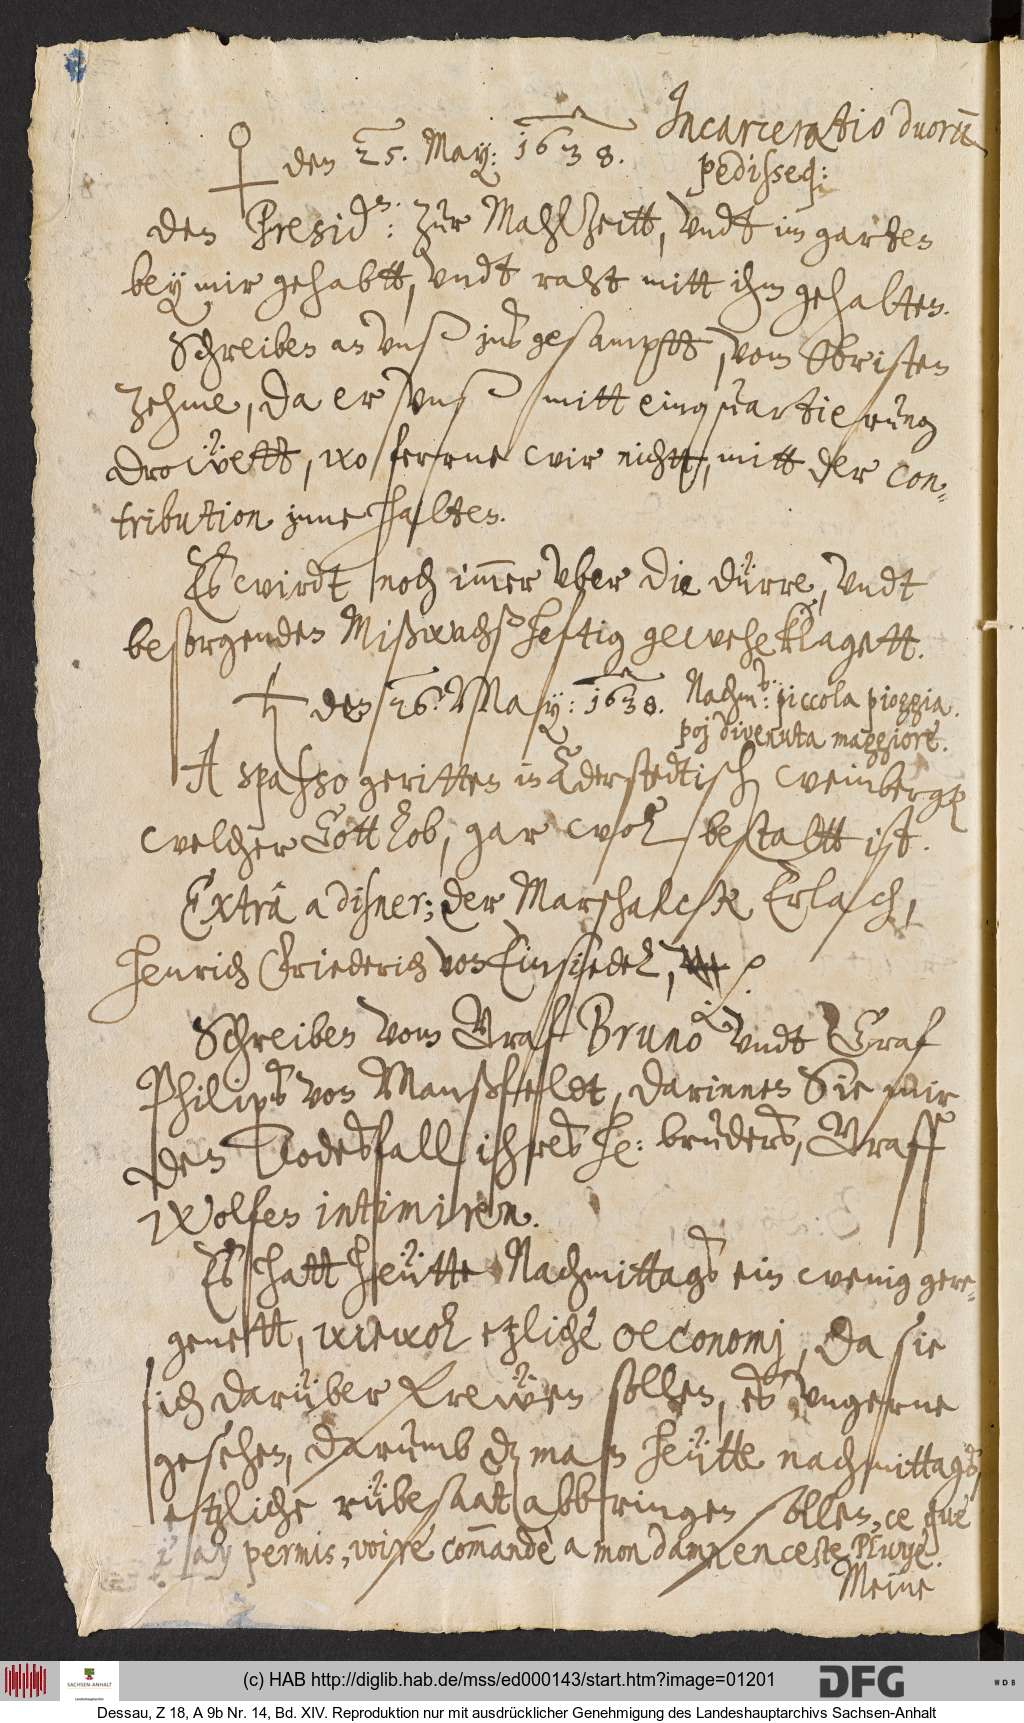 ♀ den 25. May: 1638. Incarceratio duorū
pedisseq:
den Presid.n: zur Mahlzeitt, vndt im garten
bey mir gehabtt, vndt raht mitt ihm gehalten.
Schreiben an vnß inß gesampftt, vom Obristen
Zehme, da er vnß mitt einquartierung
drowett, wo ferrne wir nichtt, mitt der con-
tribution inne halten.
Es wirdt noch im̄er vber die dürre, vndt
besorgenden Mißwachß heftig geweheklagett.
♄ den 26. May: 1638. Nachm: piccola pioggia.
poj divenuta maggiore.
A spasso geritten in Ederstedtisch weinbergk
welcher Gott lob, gar wol bestaltt ist.
Extrà a disner; der Marschalck Erlach,
Henrich Friederich von Einsiedel,
Schreiben vom Graf Bruno vndt Graf
Philips von Manßfeldt, darinnen Sie mir
den Todesfall ihres he: bruders, Graff
Wolfen intimiren.
Es hatt heütte Nachmittags ein wenig gere-
genett, wiewol etzliche oeconomj, da sie
sich darüber frewen sollen, es vngerne
gesehen, darumb dz man heütte nachmittags,
etzliche rübesaat abbringen sollen, ce que
j'ay permis, voire com̄andè a mon dam, en ceste Pluye.
Meine
(c) HAB http://diglib.hab.de/mss/ed000143/start.htm?image=01201
SACHSEN-ANHALT
DFG
WDB
Dessau, Z 18, A 9b Nr. 14, Bd. XIV. Reproduktion nur mit ausdrücklicher Genehmigung des Landeshauptarchivs Sachsen-Anhalt